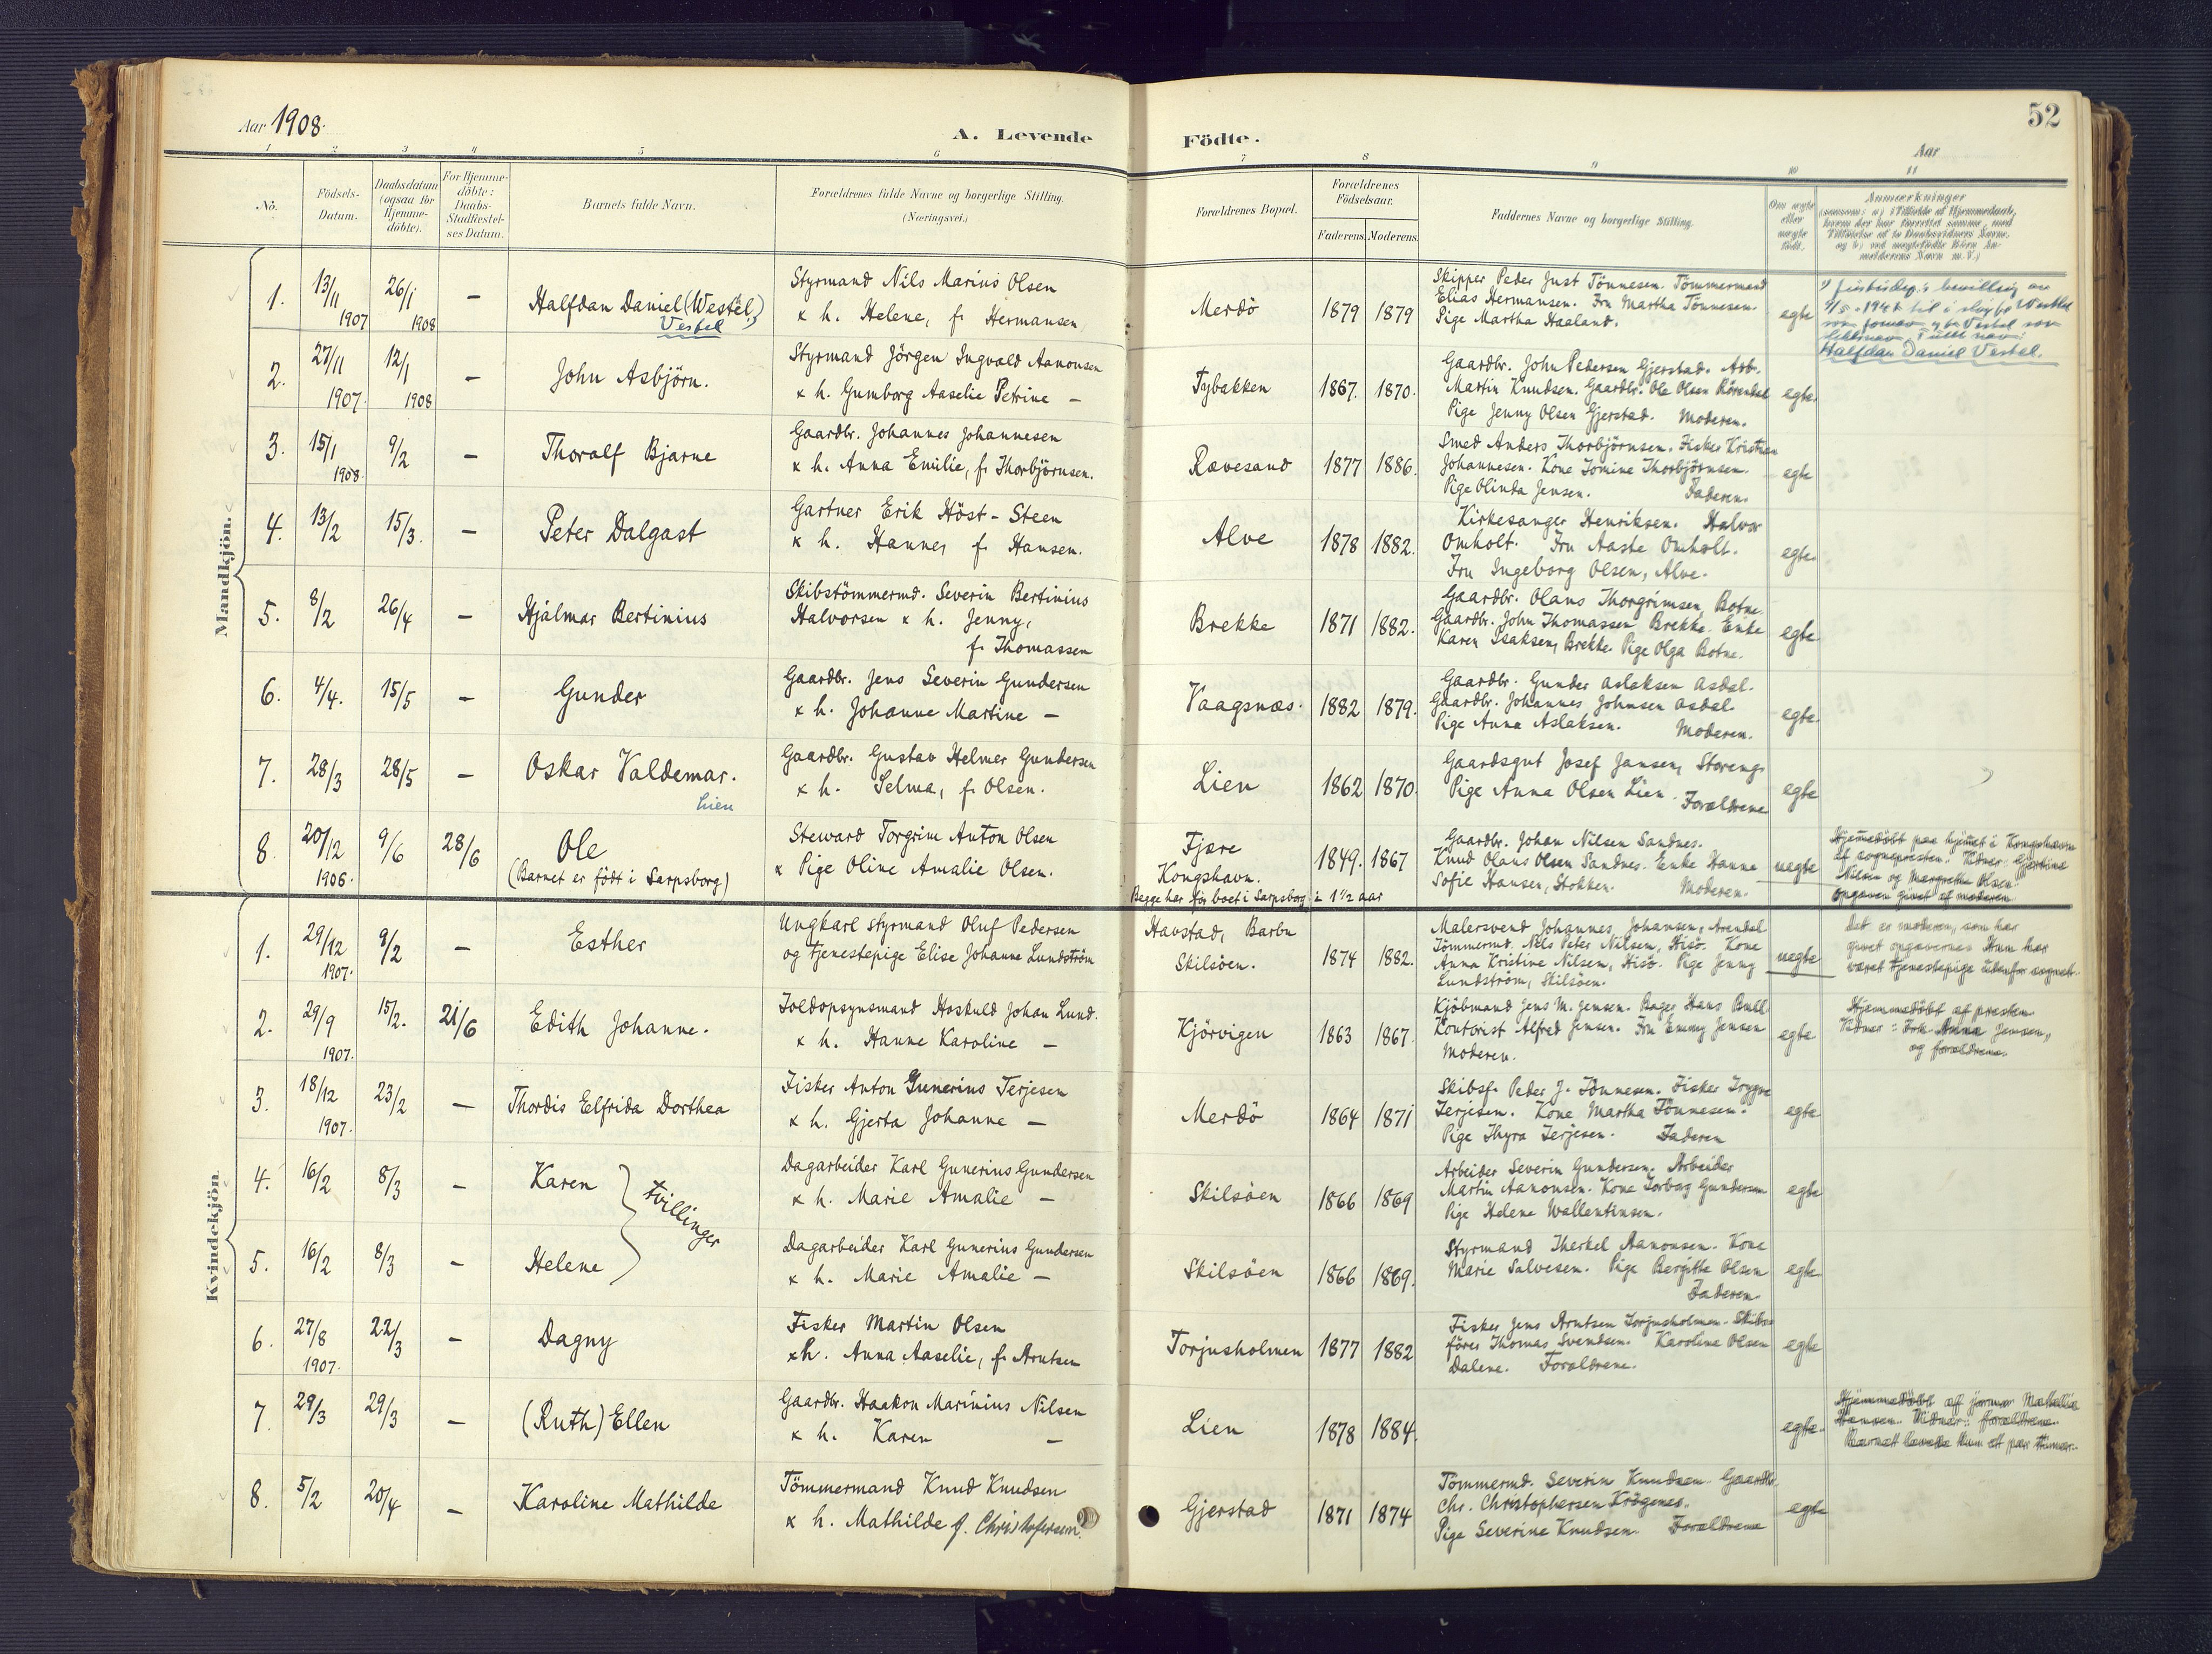 Aar 1908.
A. Levende Födte.
52
Aar
1 2 3 4 5 6 7 8 9 10 11
No.
Födsels-
Datum.
Daabsdatum
(ogsaa for
Hjemme-
döbte).
For Hjemme-
döbte:
Daabs-
Stadfæstel-
ses Datum.
Barnets fulde Navn.
Forældrenes fulde Navne og borgerlige Stilling.
(Næringsvei.)
Forældrenes Bopæl.
Forældrenes
Födselsaar.
Faderens. Moderens.
Faddernes Navne og borgerlige Stilling.
Om ægte
eller
uægte
født.
Anmerkninger
Mandkjön.
1. 13/11 1907 26/1 1908 – Halfdan Daniel (Westel)
Vestel
Styrmand Nils Marius Olsen
x h. Helene, f. Hermansen
Merdö 1879 1879
Skipper Peder Just Tönnesen. Tömmermand
Elias Hermansen. Fru Martha Tönnesen.
Pige Martha Haaland.
egte
Halfdan Daniel Vestel.
2. 27/11 1907. 12/1 1908 – John Asbjörn.
Styrmand Jörgen Ingvald Aanonsen
x h. Gumborg Aaselie Petrine –
Tybakken 1867. 1870.
Gaardbr. John Pedersen Gjerstad. Arb.
Martin Knudsen. Gaardbr. Ole Olsen Rörendal
Pige Jenny Olsen Gjerstad. Moderen.
egte.
3. 15/1 1908. 9/2 – Thoralf Bjarne
Gaardbr. Johannes Johannesen
x h. Anna Emilie, f. Thorbjörnsen.
Rævesand 1877 1886.
Smed Anders Thorbjörnsen. Fisker Kristian
Johannesen. Kone Tomine Thorbjörnsen.
Pige Olinda Jensen. Faderen.
egte
4. 13/2 15/3. – Peter Dalgast
Gartner Erik Höst-Steen
x h. Hanne, f. Hansen.
Alve 1878 1882.
Kirkesanger Henriksen. Halvor
Omholt. Fru Aaste Omholt.
Fru Ingeborg Olsen, Alve.
egte.
5. 8/2 26/4 – Hjalmar Bertinius
Skibstömmermd. Severin Bertinius
Halvorsen x h. Jenny,
f. Thomassen
Brekke 1871 1882.
Gaardbr. Olaus Thorgrimsen, Botne.
Gaardbr. John Thomassen Brekke. Enke
Karen Isaksen, Brekke. Pige Olga Botne.
egte
6. 4/4. 15/5 – Gunder
Gaardbr. Jens Severin Gundersen
x h. Johanne Martine –
Vaagsnæs. 1882 1879.
Gaardbr. Gunder Aslaksen Asdal.
Gaardbr. Johannes Johnsen Asdal.
Pige Anna Aslaksen. Moderen.
egte.
7. 28/3 28/5 – Oskar Valdemar.
Lien
Gaardbr. Gustav Helmer Gundersen
x h. Selma, f. Olsen.
Lien 1862 1870.
Gaardsgut Josef Jansen, Storeng.
Pige Anna Olsen Lien. Forældrene
egte
8. 20/12 1906. 9/6 28/6 Ole
(Barnet er födt i Sarpsborg)
Steward Torgrim Anton Olsen
x Pige Oline Amalie Olsen.
Fjære
Kongshavn.
Begge har för boet i Sarpsborg i 1 1/2 aar
1849. 1867
Gaardbr. Johan Nilsen Sandnes.
Knud Olaus Olsen Sandnes. Enke Hanne
Sofie Hansen, Stokken. Moderen.
uegte
Hjemmedöbt paa hjemet i Kongshavn
af sognepresten. Vidner: Gjertine
Nilsen og Margrethe Olsen.
Opgaven givet af moderen
Kvindekjön.
1. 29/12 1907. 9/2 – Esther
Ungkarl styrmand Oluf Pedersen
og tjenestepige Elise Johanne Lundström
Havstad, Barbu
Skilsöen.
1874 1882.
Malersvend Johannes Johansen, Arendal
Tömmermd. Nils Peter Nilsen, Hisö. Kone
Anna Kristine Nilsen, Hisö. Pige Jenny
Lundström, Skilsöen.
uegte
Det er moderen, som har
givet opgaverne. Hun har
været tjenestepige udenfor sognet.
2. 29/9 1907. 15/2. 21/6 Edith Johanne.
Toldopsynsmand Hoskuld Johan Lund.
x h. Hanne Karoline –
Kjörvigen 1863 1867.
Kjöbmand Jens M. Jensen. Bager Hans Bull.
Kontorist Alfred Jensen. Fru Emmy Jensen
Moderen.
egte
Hjemmedöbt af presten
Vidner: Frk. Anna Jensen,
og forældrene.
3. 18/12 1907. 23/2 – Thordis Elfrida Dorthea
Fisker Anton Gunerius Terjesen
x h. Gjerta Johanne –
Merdö 1864 1871
Skibsf. Peder J. Tönnesen. Fisker Trygve
Terjesen. Kone Martha Tönnesen.
Pige Thyra Terjesen. Faderen
egte
4. 16/2 8/3 – Karen
tvillinger
Dagarbeider Karl Gunerius Gundersen
x h. Marie Amalie –
Skilsöen 1866 1869
Arbeider Severin Gundersen. Arbeider
Martin Aanonsen. Kone Torborg Gundersen
Pige Helene Wallentinsen.
egte
5. 16/2 8/3 – Helene
Dagarbeider Karl Gunerius Gundersen
x h. Marie Amalie –
Skilsöen 1866 1869.
Styrmand Therkel Aanonsen. Kone
Marie Salvesen. Pige Bergitte Olsen
Faderen.
egte
6. 27/8 1907. 22/3 – Dagny
Fisker Martin Olsen
x h. Anna Aaselie, f. Arntsen
Torjusholmen 1877 1882
Fisker Jens Arntsen Torjusholmen. Skibs-
förer Thomas Svendsen. Karoline Olsen
Dalene. Forældrene.
egte
7. 29/3 29/3 – (Ruth) Ellen
Gaardbr. Haakon Marinius Nilsen
x h. Karen –
Lien 1878 1884.
egte.
Hjemmedöbt af jormor Mathilie
Hansen. Vidner: forældrene.
Barnet levede kun et par timer.
8. 5/2 20/4 – Karoline Mathilde
Tömmermand Knud Knudsen
x h. Mathilde f. Christofersen.
Gjerstad 1871 1874
Tömmermd. Severin Knudsen. Gaardbr.
Chr. Christophersen Krögenes.
Pige Severine Knudsen. Forældrene
egte